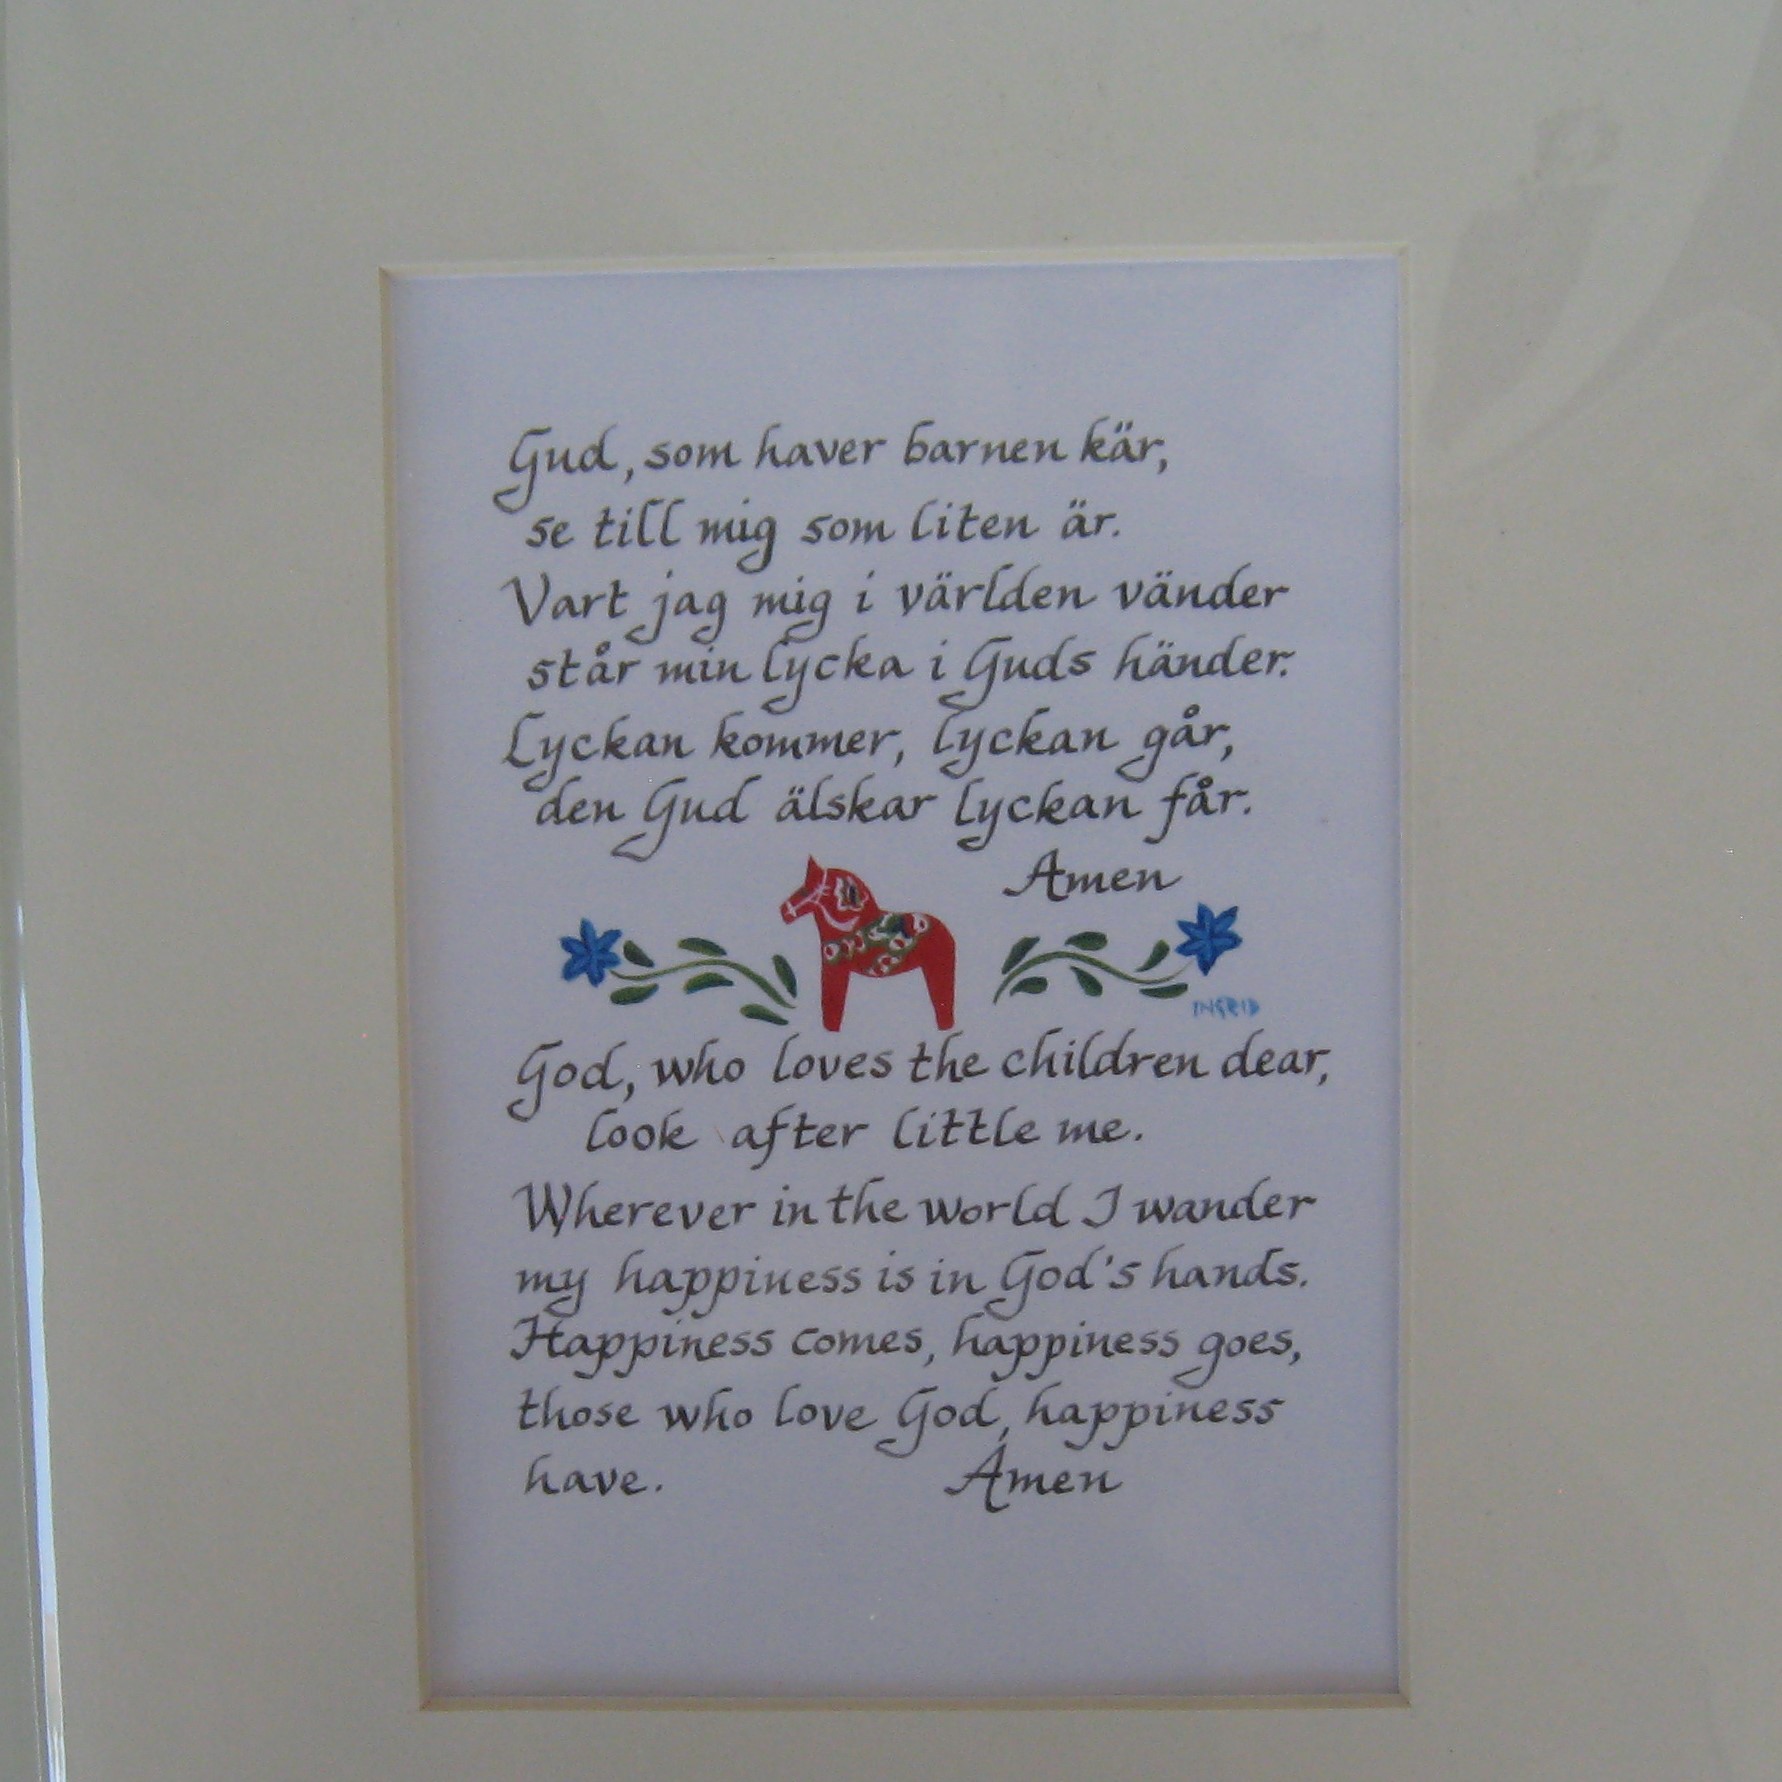 Gud, som haver barnen kär,
se till mig som liten är.
Vart jag mig i världen vänder
står min lycka i Guds händer.
Lyckan kommer, lyckan går,
den Gud älskar lyckan får.
Amen
INGRID
God, who loves the children dear,
look after little me.
Wherever in the world I wander
my happiness is in God's hands.
Happiness comes, happiness goes,
those who love God, happiness
have. Amen